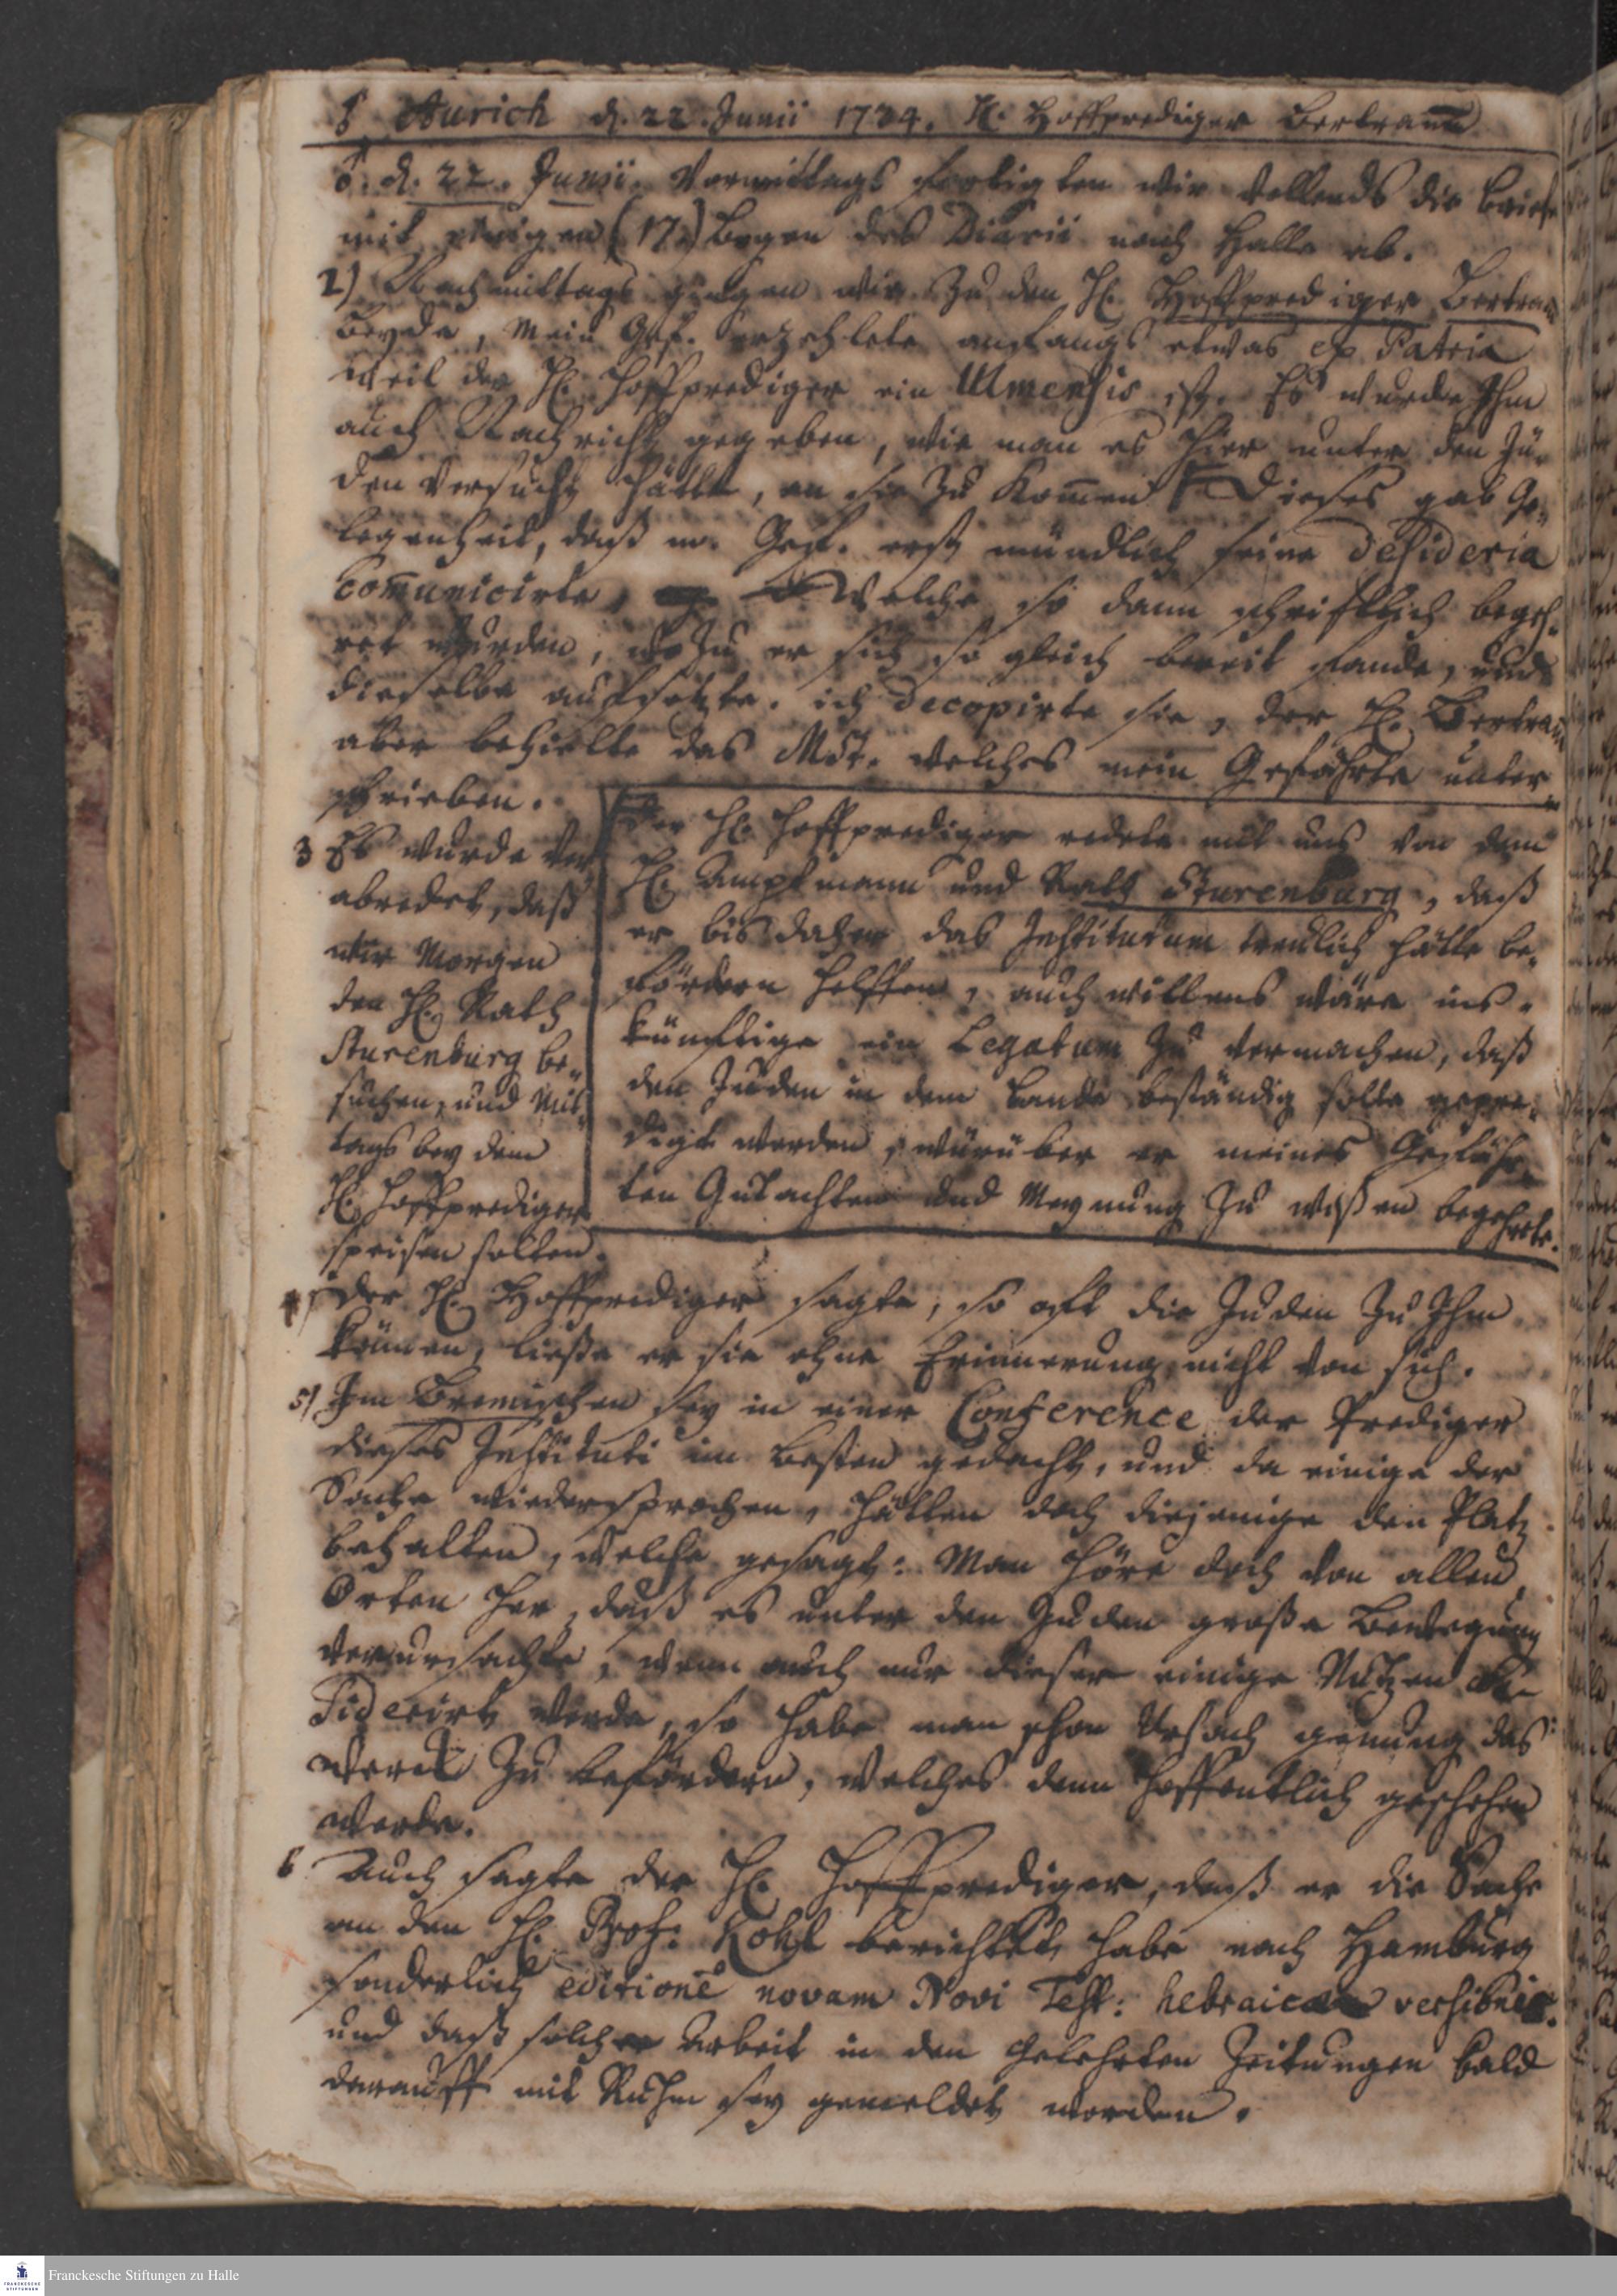 8 Aurich d. 22. Junii 1734. H. Hoffprediger Bertram
d. 22. Junii. Vormittags fertigten wir vollends die briefe
mit einigen (17.) bogen des Diarii nach Halle ab.
2) Nachmittags gingen wir zu den H. Hoffprediger Bertram
beyde, mein Gef. erzehlete anfangs etwas ex Patria
weil der H. Hoffprediger ein Ulmensis ist. Es wurde Ihm
auch Nachricht gegeben, wie man es hier unter den Ju-
den versucht hätte, an sie zu kom̄en. Dieses gab Ge-
legenheit, daß m. Gef. erst mündlich seine Desideria
com̄unicirte, welche so dann schrifftlich begeh-
ret wurden, wozu er sich so gleich bereit fande, und
dieselbe aufsetzte. ich decopirte sie, der H. Bertram
aber behielte das Mst. welches mein Gefährte unter-
schrieben.
3 Es wurde ver-
abredet, daß
wir Morgen
den H. Rath
Sturenburg be-
suchen, und Mit-
tags bey dem
H. Hoffprediger
speisen solten.
Der H. Hoffprediger redete mit uns von dem
H. Amptmann und Rath Sturenburg, daß
er bis daher das Institutum treulich hätte be-
fördern helffen, auch willens wäre ins-
künfftige ein Legatum zu vermachen, daß
den Juden in dem Lande beständig solte gepre-
digt werden, worüber er meines Gefähr-
ten Gutachten und Meynung zu wißen begehrte.
4) Der H. Hoffprediger sagte, so offt die Juden zu Ihm
kämen, ließe er sie ohne Erinnerung nicht von sich.
5) Im Bremischen sey in einer Conference der Prediger
dieses Instituti im besten gedacht, und da einige der
Sache wiedersprochen, hätten doch diejenige den Platz
behalten, welche gesagt: Man höre doch von allen
Orten her, daß es unter den Juden große Bewegung
verursachte, wenn auch nur dieser einige Nutzen
siderirt werde, so habe man schon Ursach genung das
Werck zu befördern, welches denn hoffentlich geschehen
werde.
6 Auch sagte der H. Hoffprediger, daß er die Sache
an den H. Prof: Kohl berichtet habe nach Hamburg
sonderlich editionē novam Novi Test: hebraicae versionis.
und daß solcher Arbeit in den Gelehrten Zeitungen bald
darauff mit Ruhm sey gemeldet worden.
FRANCKESCHE
STIFTUNGEN
Franckesche Stiftungen zu Halle